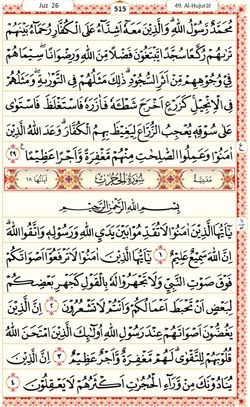 Juz 26 515 49. Al-Hujurāt
مُحَمَّدٌ رَّسُولُ اللهِ ۚ وَالَّذِيْنَ مَعَهٗۤ اَشِدَّآءُ عَلَى الْكُفَّارِ رُحَمَآءُ بَيْنَهُمْ
تَرٰىهُمْ رُكَّعًا سُجَّدًا يَّبْتَغُوْنَ فَضْلًا مِّنَ اللهِ وَرِضْوَانًا ۖ سِيْمَاهُمْ
فِيْ وُجُوْهِهِمْ مِّنْ اَثَرِ السُّجُوْدِ ۚ ذٰلِكَ مَثَلُهُمْ فِي التَّوْرٰىةِ ۛ وَمَثَلُهُمْ
فِي الْاِنْجِيْلِ ۛ كَزَرْعٍ اَخْرَجَ شَطْـَٔهٗ فَاٰزَرَهٗ فَاسْتَغْلَظَ فَاسْتَوٰى
عَلٰى سُوْقِهٖ يُعْجِبُ الزُّرَّاعَ لِيَغِيْظَ بِهِمُ الْكُفَّارَ ۗ وَعَدَ اللهُ الَّذِيْنَ
اٰمَنُوْا وَعَمِلُوا الصّٰلِحٰتِ مِنْهُمْ مَّغْفِرَةً وَّاَجْرًا عَظِيْمًا ﴿٢٩﴾
مَدَنِيَّة سُوْرَةُ الْحُجُرٰتِ اٰيَاتُهَا ١٨
بِسْمِ اللهِ الرَّحْمٰنِ الرَّحِيْمِ
يٰۤاَيُّهَا الَّذِيْنَ اٰمَنُوْا لَا تُقَدِّمُوْا بَيْنَ يَدَيِ اللهِ وَرَسُوْلِهٖ وَاتَّقُوا اللهَ ۗ
اِنَّ اللهَ سَمِيْعٌ عَلِيْمٌ ﴿١﴾ يٰۤاَيُّهَا الَّذِيْنَ اٰمَنُوْا لَا تَرْفَعُوْۤا اَصْوَاتَكُمْ
فَوْقَ صَوْتِ النَّبِيِّ وَلَا تَجْهَرُوْا لَهٗ بِالْقَوْلِ كَجَهْرِ بَعْضِكُمْ
لِبَعْضٍ اَنْ تَحْبَطَ اَعْمَالُكُمْ وَاَنْتُمْ لَا تَشْعُرُوْنَ ﴿٢﴾ اِنَّ الَّذِيْنَ
يَغُضُّوْنَ اَصْوَاتَهُمْ عِنْدَ رَسُوْلِ اللهِ اُولٰٓئِكَ الَّذِيْنَ امْتَحَنَ اللهُ
قُلُوْبَهُمْ لِلتَّقْوٰى ۗ لَهُمْ مَّغْفِرَةٌ وَّاَجْرٌ عَظِيْمٌ ﴿٣﴾ اِنَّ الَّذِيْنَ
يُنَادُوْنَكَ مِنْ وَّرَآءِ الْحُجُرٰتِ اَكْثَرُهُمْ لَا يَعْقِلُوْنَ ﴿٤﴾